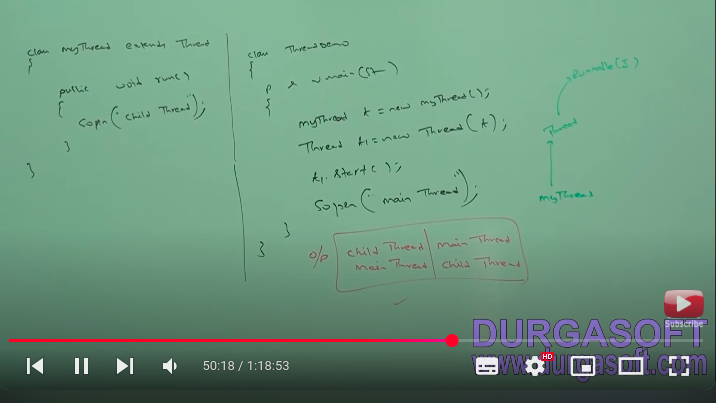 class MyThread extends Thread
{
public void run()
{
sopln("child Thread");
}
}
class ThreadDemo
{
p s v main(St—)
{
MyThread t = new MyThread();
Thread t1 = new Thread(t);
t1.start();
Sopln("main Thread");
}
}
o/p
child Thread main Thread
main Thread child Thread
Runnable(I)
Thread
MyThread
Subscribe
DURGASOFT
www.durgasoft.com
50:18 / 1:18:53
HD